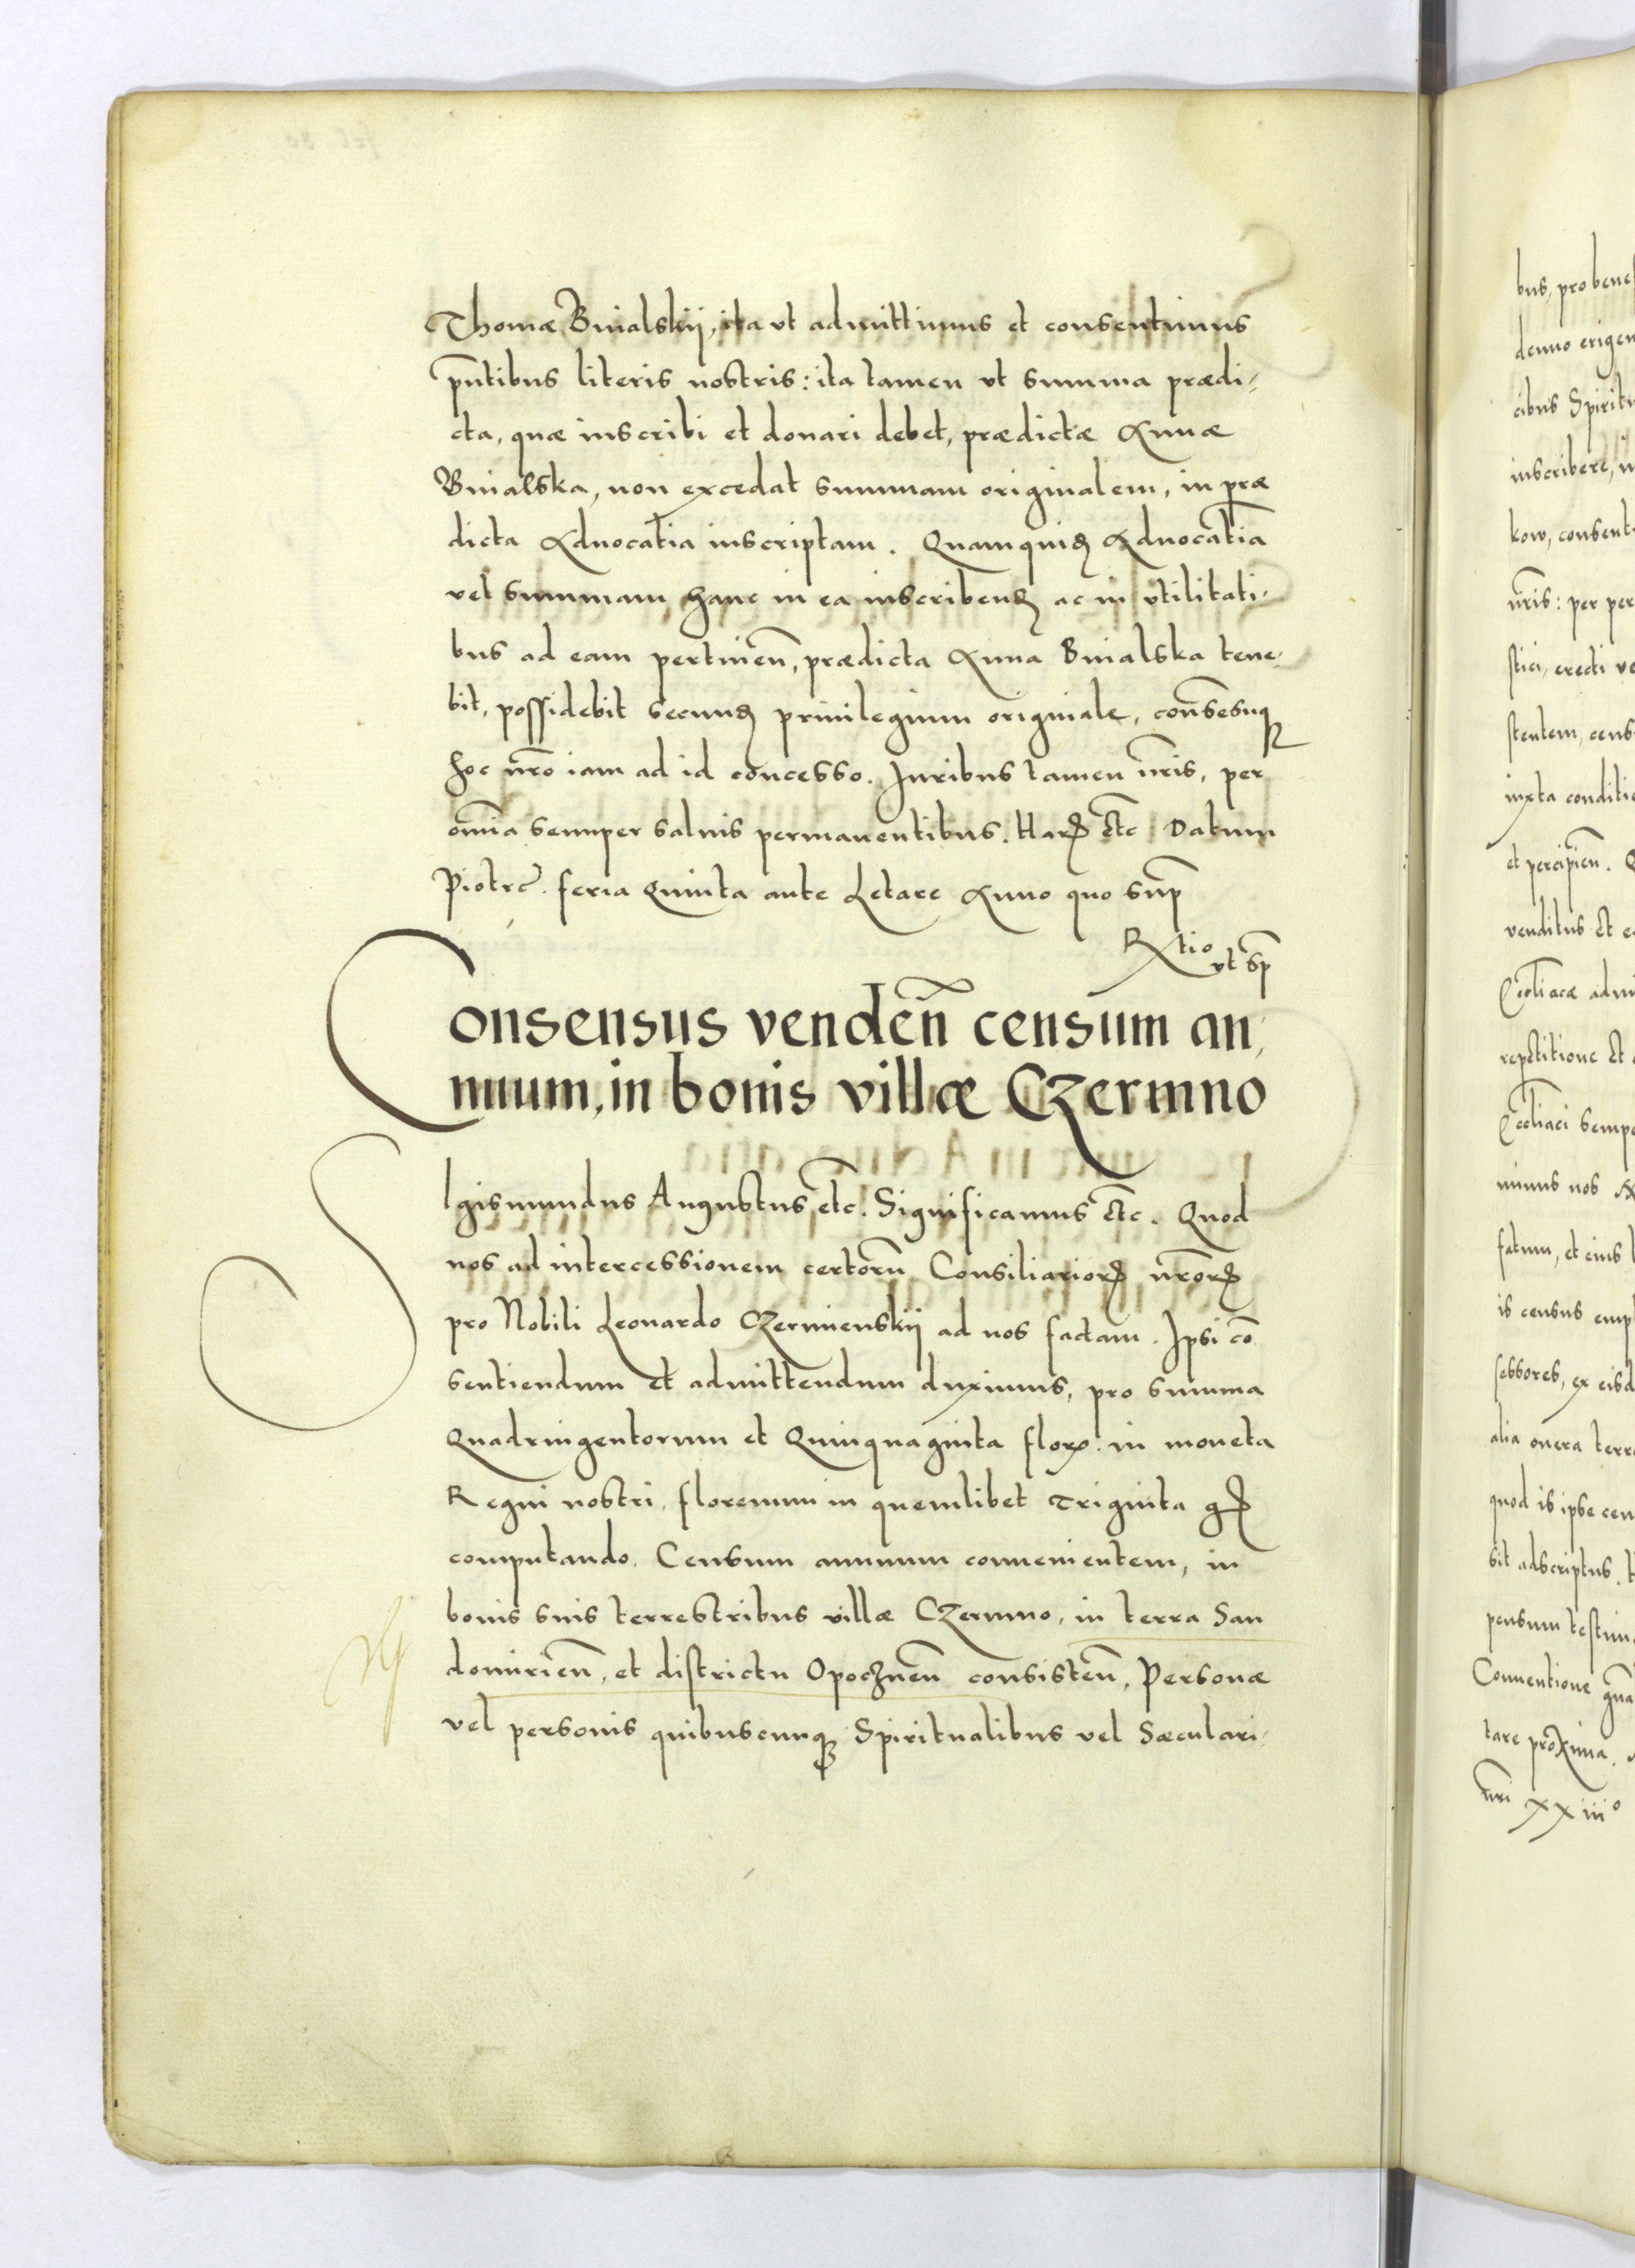 Thomæ Bnialskij, ita vt admittimus et consentimus
pn̄tibus literis nostris: ita tamen vt summa prædi-
cta, quæ inscribi et donari debet, prædictæ Annæ
Bnialska, non excedat summam originalem, in præ
dicta Aduocatia inscriptam. Quamquidꝫ Aduocatiā
vel summam hanc in ea inscribendꝫ ac in vtilitati-
bus ad eam pertinen̄, prædicta Anna Bnialska tene-
bit, possidebit secundꝫ priuilegium originale, consensuqꝫ
hoc nr̄o iam ad id concesso. Iuribus tamen nr̄is, per
omīa semper saluis permanentibus. Harꝝ etc̄ Datum
Piotrc̄. feria Quinta ante Letare Anno quo sup̄
Rx̄tio vt sp̄
Consensus venden̄ censum an-
nuum, in bonis villæ Czermno
SIgismundus Augustus etc̄. Significamus etc̄. Quod
nos ad intercessionem certorū Consiliariorꝝ nr̄orꝝ
pro Nobili Leonardo Czermienskij ad nos factam. Ipsi cō
sentiendum et admittendum duximus, pro summa
Quadringentorum et Quinquaginta florꝝ. in moneta
Regni nostri, florenum in quemlibet Triginta grꝝ
computando. Censum annuum conuenientem, in
bonis suis terrestribus villæ Czermno, in terra San
domirien̄, et districtu Opocznen̄ consisten̄, Personæ
vel personis quibuscunqꝫ Spiritualibus vel Sæculari-
bus, pro bene
denuo erigen
cibus Spiritu
inscribere,
kow, consent
nr̄is: per per
stici, erecti
stentem, cens
iuxta conditi
et percipien̄.
venditus et
repetitione et
Semp
minus nos
fatum, et eius
is census emp
sessores, ex eisd
alia onera terr
quod is ipse cen
sit adscriptus.
pensum testim
Conuentione
tare proxima.
nr̄i xxiiiº